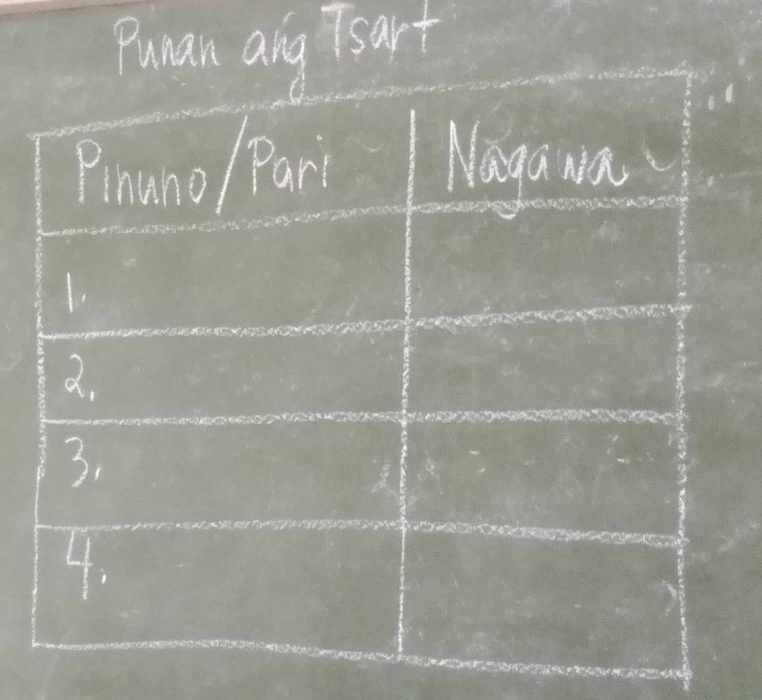 Punan ang Tsart
Pinuno/Pari Nagawa
1.
2.
3.
4.